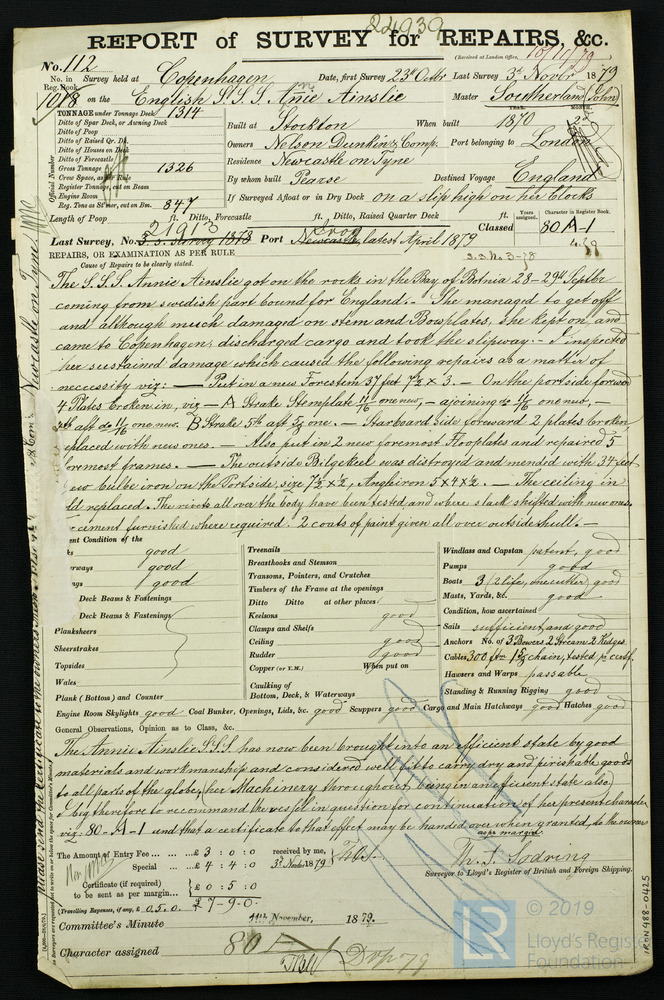 24939
REPORT of SURVEY for REPAIRS, &c.
(Received at London Office, 10/11/79)
No. 112
No. in Reg. Book. Survey held at Copenhagen Date, first Survey 23d Octbr Last Survey 3d Novbr 1879
1018 on the English S.S.S. Annie Ainslie Master Southerland (John)
TONNAGE under Tonnage Deck 1314
Ditto of Spar Deck, or Awning Deck
Ditto of Poop
Ditto of Raised Qr. Dk.
Ditto of Houses on Deck
Ditto of Forecastle
Gross Tonnage 1326
Crew Space, as per Rule
Register Tonnage, cut on Beam
Engine Room
Reg. Tons as St'mer, cut on Bm. 847
Official Number
Built at Stockton When built 1870
YEAR. MONTH.
Owners Nelson Dunkin & Comp. Port belonging to London
Residence Newcastle on Tyne
By whom built Pearse Destined Voyage England
If Surveyed Afloat or in Dry Dock on a slip high on her blocks
Length of Poop ft. Ditto, Forecastle ft. Ditto, Raised Quarter Deck ft.
Years assigned. Character in Register Book.
Classed 80 A-1
21913
Last Survey, No. Survey 1878 Port Newcastle, latest April 1879
4.79
S.S. No 3-78
REPAIRS, OR EXAMINATION AS PER RULE
Cause of Repairs to be clearly stated.
The S.S.S. Annie Ainslie got on the rocks in the Bay of Botnia 28-29th Septbr
coming from swedish part bound for England.- She managed to get off
and although much damaged on stem and Bowsplates, she kept on, and
came to Copenhagen, discharged cargo and took the slipway.- I inspected
her sustained damage which caused the following repairs as a matter of
neccessity viz: — Put in a new Forestem 37 feet 7½ x 3. — On the portside forword
4 Plates broken in, viz - A Strake Stemplate 11/16 one new, - ajoining do 11/16 one new, -
aft do 11/16 one new. B Strake 5th aft one. — Starboard side foreward 2 plates broken
eplaced with new ones. — Also put in 2 new foremost Flooplates and repaired 5
oremost frames. — The outside Bilgekeel was distroyed and mended with 34 feet
ew bulbe iron on the Portside, size 7½ x ½, Angleiron 5 x 4 x ½. — The ceiling in
ld replaced. The rivets all over the body have been tested, and where slack shifted with new ones,
cement furnished where required. 2 coats of paint given all over outside hull. —
nt Condition of the
ks good
rways good
ngs good
Deck Beams & Fastenings
Deck Beams & Fastenings
Planksheers
Sheerstrakes
Topsides
Wales
Plank (Bottom) and Counter
Treenails
Breasthooks and Stemson
Transoms, Pointers, and Crutches
Timbers of the Frame at the openings
Ditto Ditto at other places
Keelsons good
Clamps and Shelfs
Ceiling good
Rudder good
Copper (or Y.M.) When put on
Caulking of Bottom, Deck, & Waterways
Windlass and Capstan patent, good
Pumps good
Boats 3 (2 life, one cutter) good
Masts, Yards, &c. good
Condition, how ascertained
Sails sufficient, and good
Anchors No. of 3 Bowers 2 Stream 2 Kedges
Cables 300 fth chain, tested p certf.
Hawsers and Warps passable
Standing & Running Rigging good
Engine Room Skylights good Coal Bunker, Openings, Lids, &c. good Scuppers good Cargo and Main Hatchways good Hatches good
General Observations, Opinion as to Class, &c.
The Annie Ainslie S.S.S. has now been brought into an efficient state by good
materials and workmanship and considered well fit to carry dry and perishable goods
to all parts of the globe, (her Machinery throughout being in an efficient state also)
I beg therefore to recommand the vessel in question for continuation of her present character
viz: 80-A-1 and that a certificate to that effect may be handed over when granted, to the owners
as per margin.
The Amount of Entry Fee ... £ 3 : 0 : 0 received by me,
Special ... £ 4 : 4 : 0 3d Novbr 1879
Certificate (if required) to be sent as per margin... £ 0 : 5 : 0
(Travelling Expenses, if any, £ 0.5.0.) £ 7-9-0
Th. S. Sodring
Surveyor to Lloyd's Register of British and Foreign Shipping.
Committee's Minute 11th November, 1879.
Character assigned 80 A
Please send the Certificate to the owners
Newcastle on Tyne
IRON488-0425
LR
© 2019
Lloyd's Register
Foundation